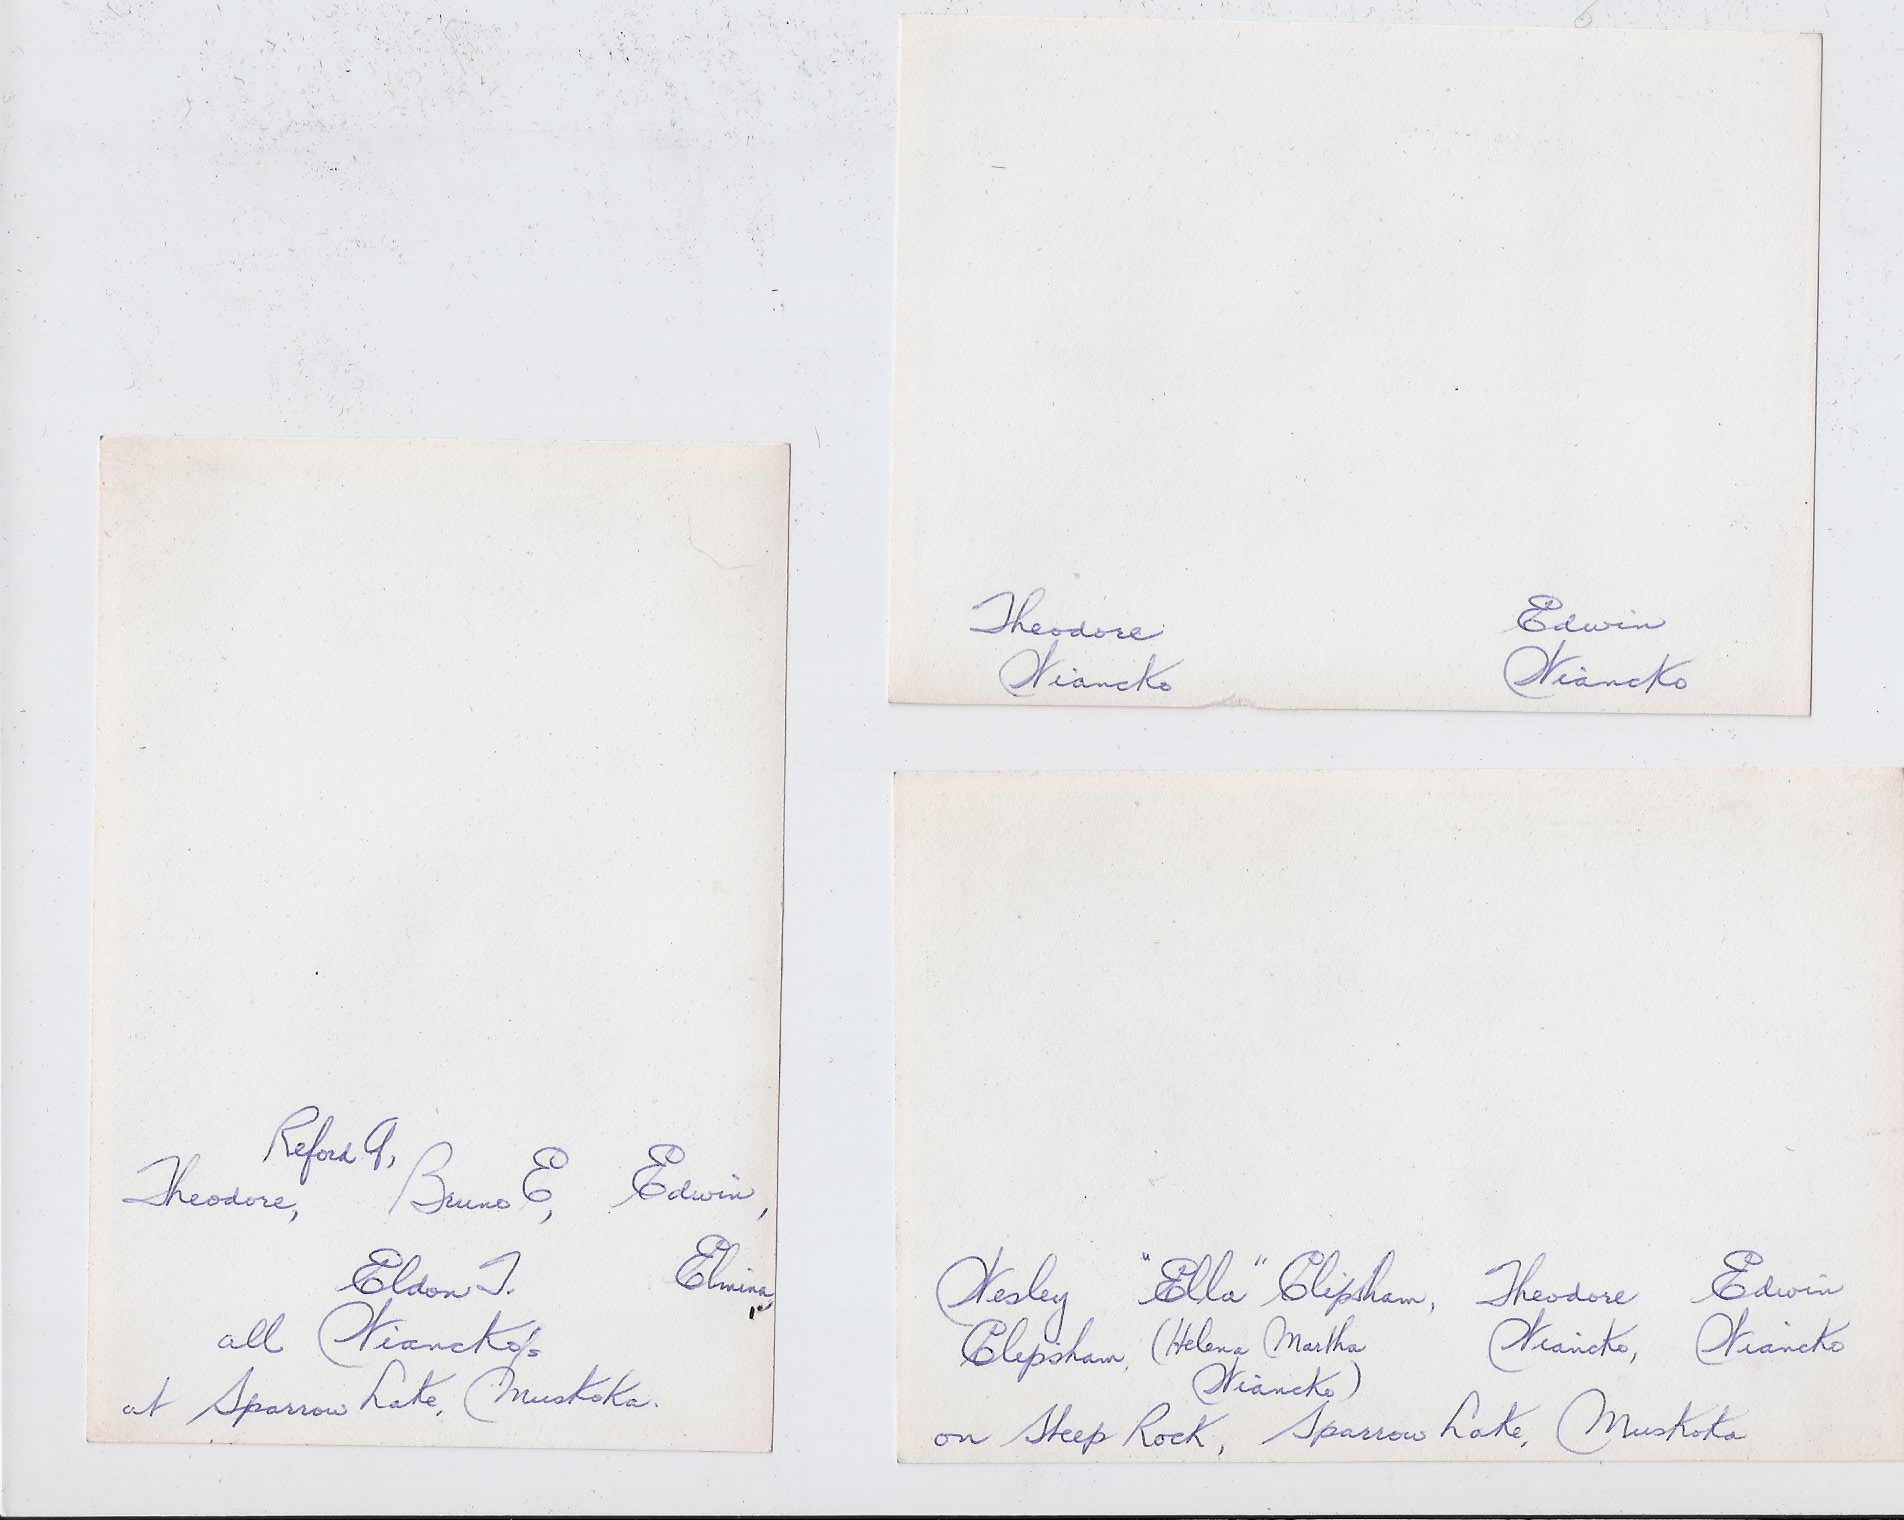 Theodore Edwin
Wiancko Wiancko
Reford A,
Theodore, Bruno E, Edwin,
Eldon T. Elmina,
all Wiancko's
at Sparrow Lake, Muskoka.
Wesley "Ella" Clipsham, Theodore Edwin
Clipsham, (Helena Martha Wiancko, Wiancko
Wiancko)
on Steep Rock, Sparrow Lake, Muskoka